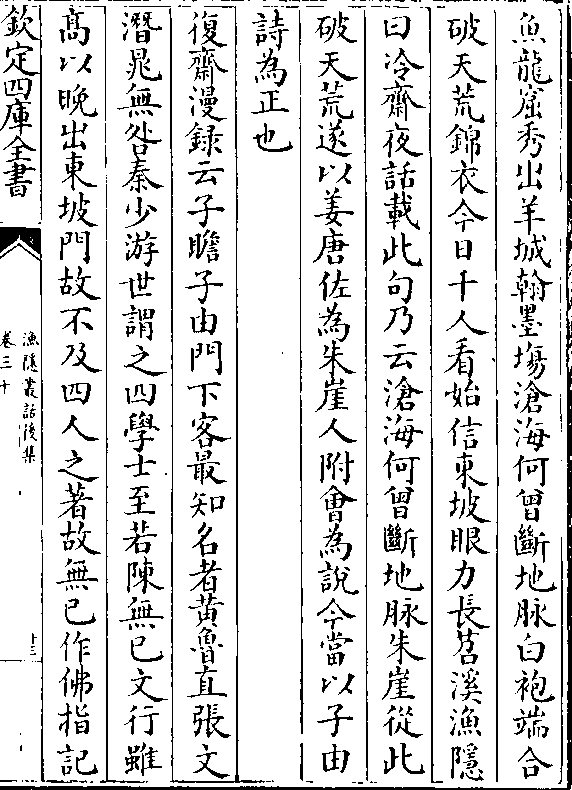 魚龍窟秀出羊城翰墨塲滄海何曾斷地脉白袍端合
破天荒錦衣今日千人看始信東坡眼力長苕溪漁隱
曰冷齋夜話載此句乃云滄海何曾斷地脉朱崖從此
破天荒遂以姜唐佐為朱崖人附會為說今當以子由
詩為正也
復齋漫録云子瞻子由門下客最知名者黄魯直張文
潛晁無咎秦少游世謂之四學士至若陳無已文行雖
髙以晚出東坡門故不及四人之著故無已作佛指記
欽定四庫全書
漁隱叢話後集
卷三十
十三